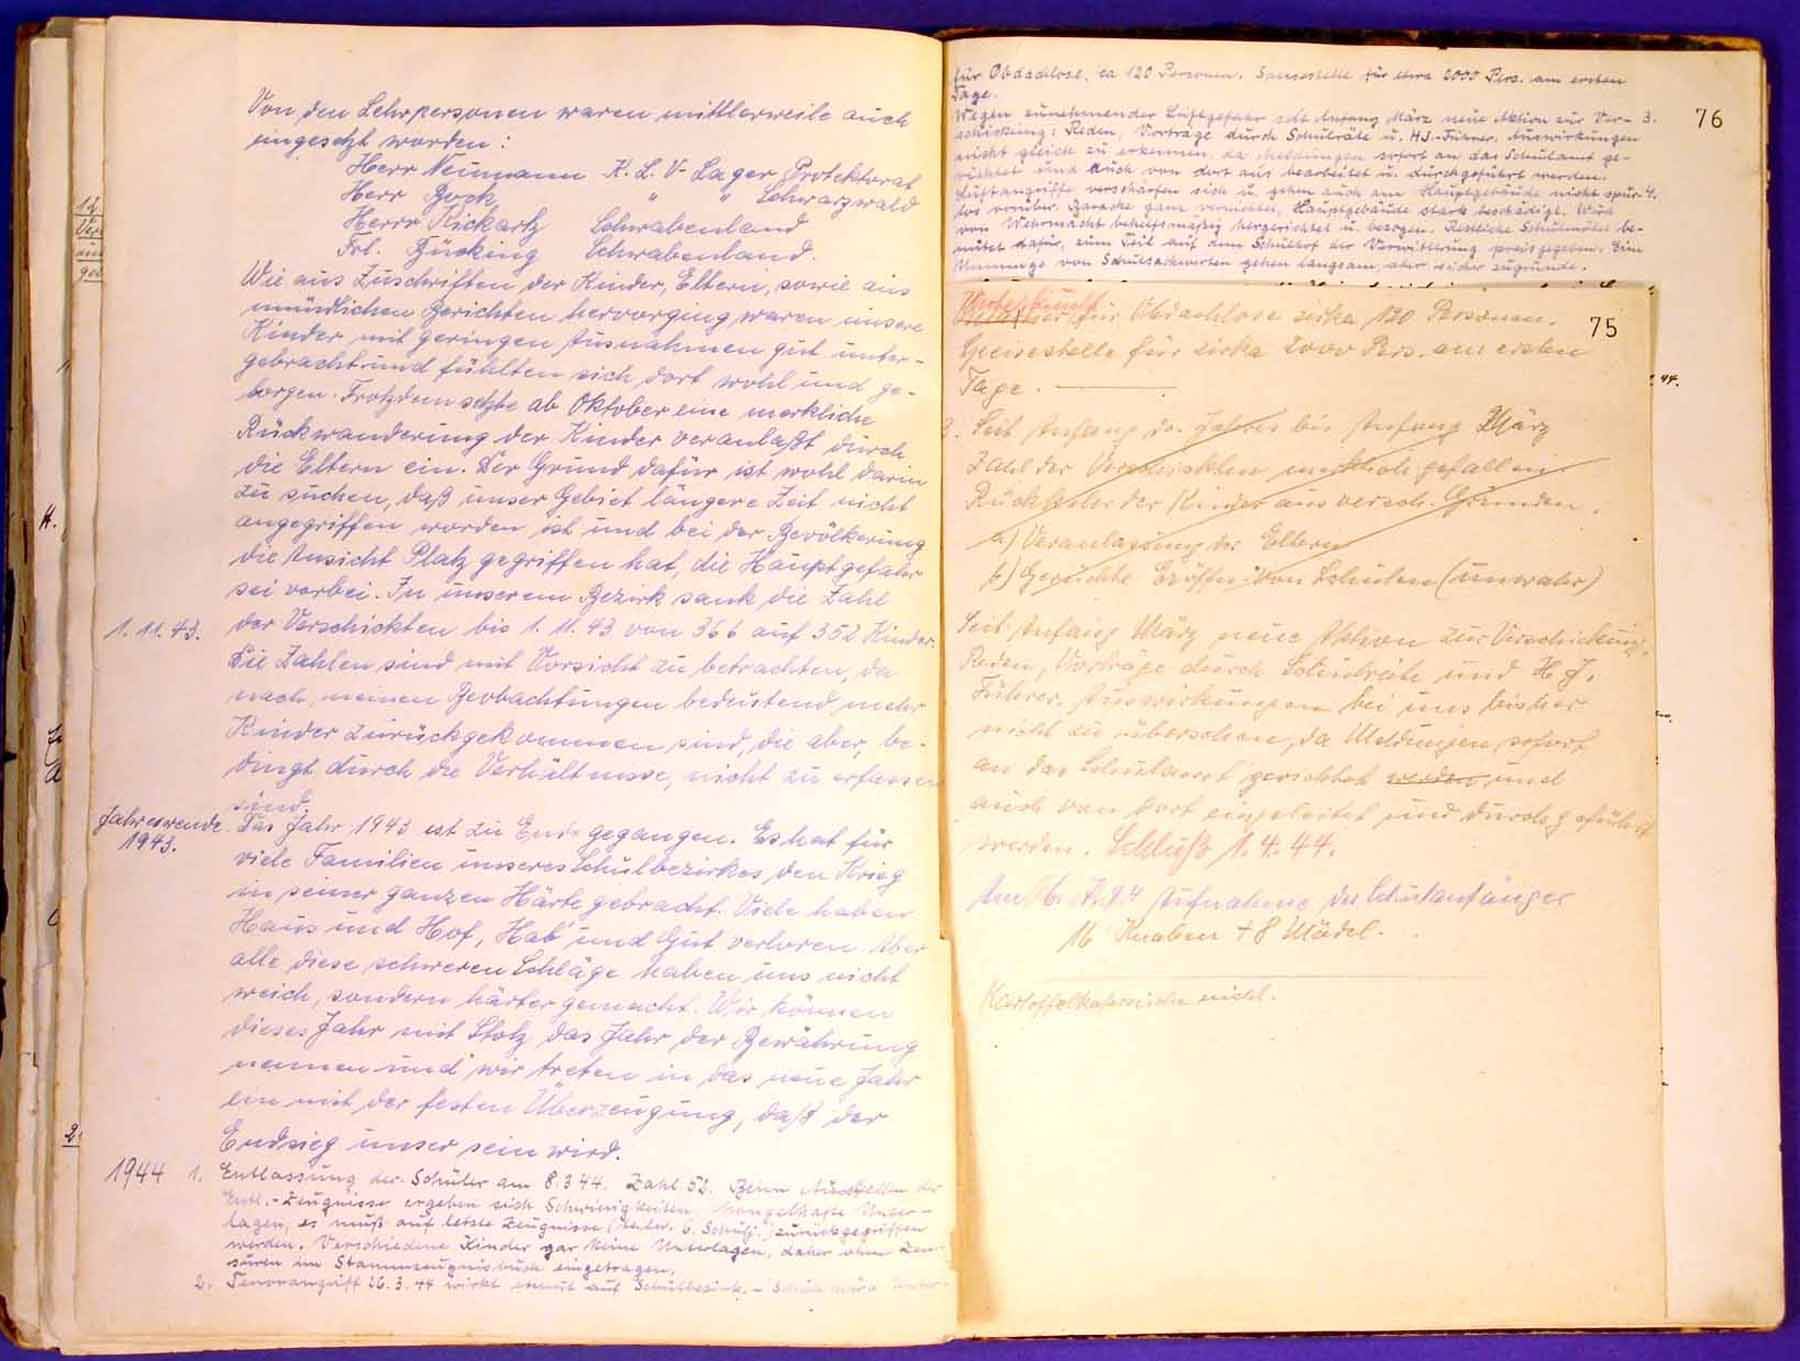 Von den Lehrpersonen waren mittlerweile auch
eingesetzt worden:
Herr Neumann K. L. V- Lager Protektorat
Herr Bock " " Schwarzwald
Herr Rickartz Schwabenland
Frl. Bücking Schwabenland.
Wie aus Zuschriften der Kinder, Eltern, sowie aus
mündlichen Berichten hervorging waren unsere
Kinder mit geringen Ausnahmen gut unter-
gebracht und fühlten sich dort wohl und ge-
borgen. Trotzdem setzte ab Oktober eine merkliche
Rückwanderung der Kinder veranlaßt durch
die Eltern ein. Der Grund dafür ist wohl darin
zu suchen, daß unser Gebiet längere Zeit nicht
angegriffen worden ist und bei der Bevölkerung
die Ansicht Platz gegriffen hat, die Hauptgefahr
sei vorbei. In unserem Bezirk sank die Zahl
1. 11. 43. der Verschickten bis 1. 11. 43 von 366 auf 352 Kinder.
Die Zahlen sind mit Vorsicht zu betrachten, da
nach meinen Beobachtungen bedeutend mehr
Kinder zurückgekommen sind, die aber, be-
dingt durch die Verhältnisse, nicht zu erfassen
sind.
Jahreswende Das Jahr 1943 ist zu Ende gegangen. Es hat für
1943. viele Familien unseres Schulbezirkes den Krieg
in seiner ganzen Härte gebracht. Viele haben
Haus und Hof, Hab und Gut verloren. Aber
alle diese schweren Schläge haben uns nicht
weich, sondern härter gemacht. Wir können
dieses Jahr mit Stolz das Jahr der Bewährung
nennen und wir treten in das neue Jahr
ein mit der festen Überzeugung, daß der
Endsieg unser sein wird.
1944 1. Entlassung der Schüler am 8.3.44. Zahl 52. Beim Ausstellen der
Entl.-Zeugnisse ergeben sich Schwierigkeiten. Mangelhafte Unter-
lagen, es muß auf letzte Zeugnisse 6. Schulj. zurückgegriffen
werden. Verschiedene Kinder gar keine Unterlagen, daher ohne Zen-
suren im Stammzeugnisbuch eingetragen.
2. Terrorangriff 26.3.44 wirkt erneut auf Schulbezirk. –
für Obdachlose, ca 120 Personen. Speisestelle für etwa 2000 Pers. am ersten
Tage.
Wegen zunehmender Luftgefahr seit Anfang März neue Aktion zur Ver- 3.
schickung: Reden, Vorträge durch Schulräte u. HJ.-Führer. Auswirkungen
nicht gleich zu erkennen, da Meldungen sofort an das Schulamt ge-
richtet und auch von dort aus bearbeitet u. durchgeführt werden.
Luftangriffe verschärfen sich u. gehen auch am Hauptgebäude nicht spur- 4.
los vorüber. Baracke ganz vernichtet, Hauptgebäude stark beschädigt. Wird
von Wehrmacht behelfsmäßig hergerichtet u. bezogen. Restliche Schulmöbel be-
nützt dafür, zum Teil auf dem Schulhof der Verwitterung preisgegeben. Eine
Unmenge von Schulsachwerten gehen langsam, aber sicher zugrunde.
76
für Obdachlose zirka 120 Personen.
75
Speisestelle für zirka 2000 Pers. am ersten
Tage.
3. Seit Anfang des Jahres bis Anfang März
Zahl der Verschickten merklich gefallen.
Rückkehr der Kinder aus versch. Gründen.
a) Veranlassung der Eltern
b) Gerüchte Eröffn. von Schulen (unwahr)
Seit Anfang März neue Aktion zur Verschickung,
Reden, Vorträge durch Schulräte und H. J.
Führer. Auswirkungen bei uns bisher
nicht zu übersehen, da Meldungen sofort
an das Schulamt gerichtet werden und
auch von dort eingeleitet und durchgeführt
werden. Schluß 1. 4. 44.
Aufnahme der Schulanfänger
16 Knaben + 8 Mädel.